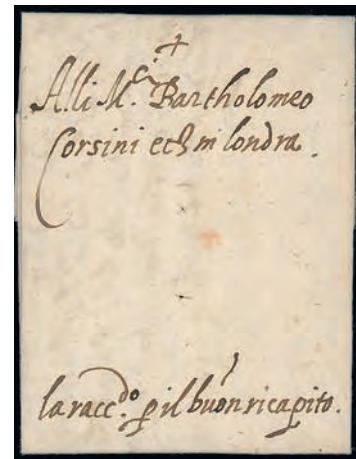 +
A.lli M.ci Bartholomeo
Corsini et C in londra.
la racc.do p il buon ricapito.